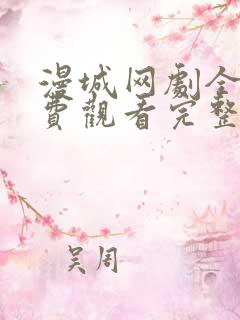 漫城网劇全
費觀看完整
吴周